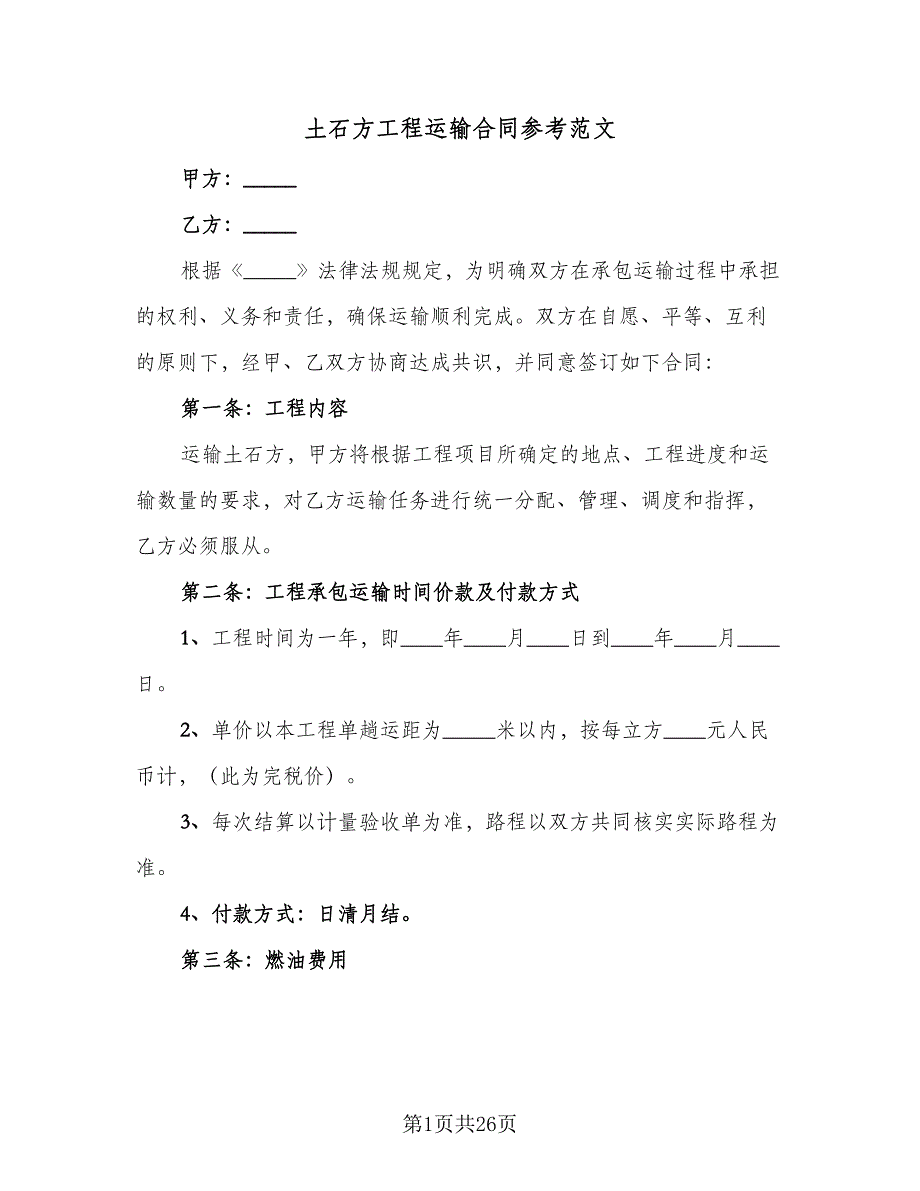 土石方工程运输合同参考范文
甲方：_____
乙方：_____
根据《_____》法律法规规定，为明确双方在承包运输过程中承担
的权利、义务和责任，确保运输顺利完成。双方在自愿、平等、互利
的原则下，经甲、乙双方协商达成共识，并同意签订如下合同：
第一条：工程内容
运输土石方，甲方将根据工程项目所确定的地点、工程进度和运
输数量的要求，对乙方运输任务进行统一分配、管理、调度和指挥，
乙方必须服从。
第二条：工程承包运输时间价款及付款方式
1、工程时间为一年，即____年____月____日到____年____月____
日。
2、单价以本工程单趟运距为_____米以内，按每立方____元人民
币计，（此为完税价）。
3、每次结算以计量验收单为准，路程以双方共同核实实际路程为
准。
4、付款方式：日清月结。
第三条：燃油费用
第1页共26页